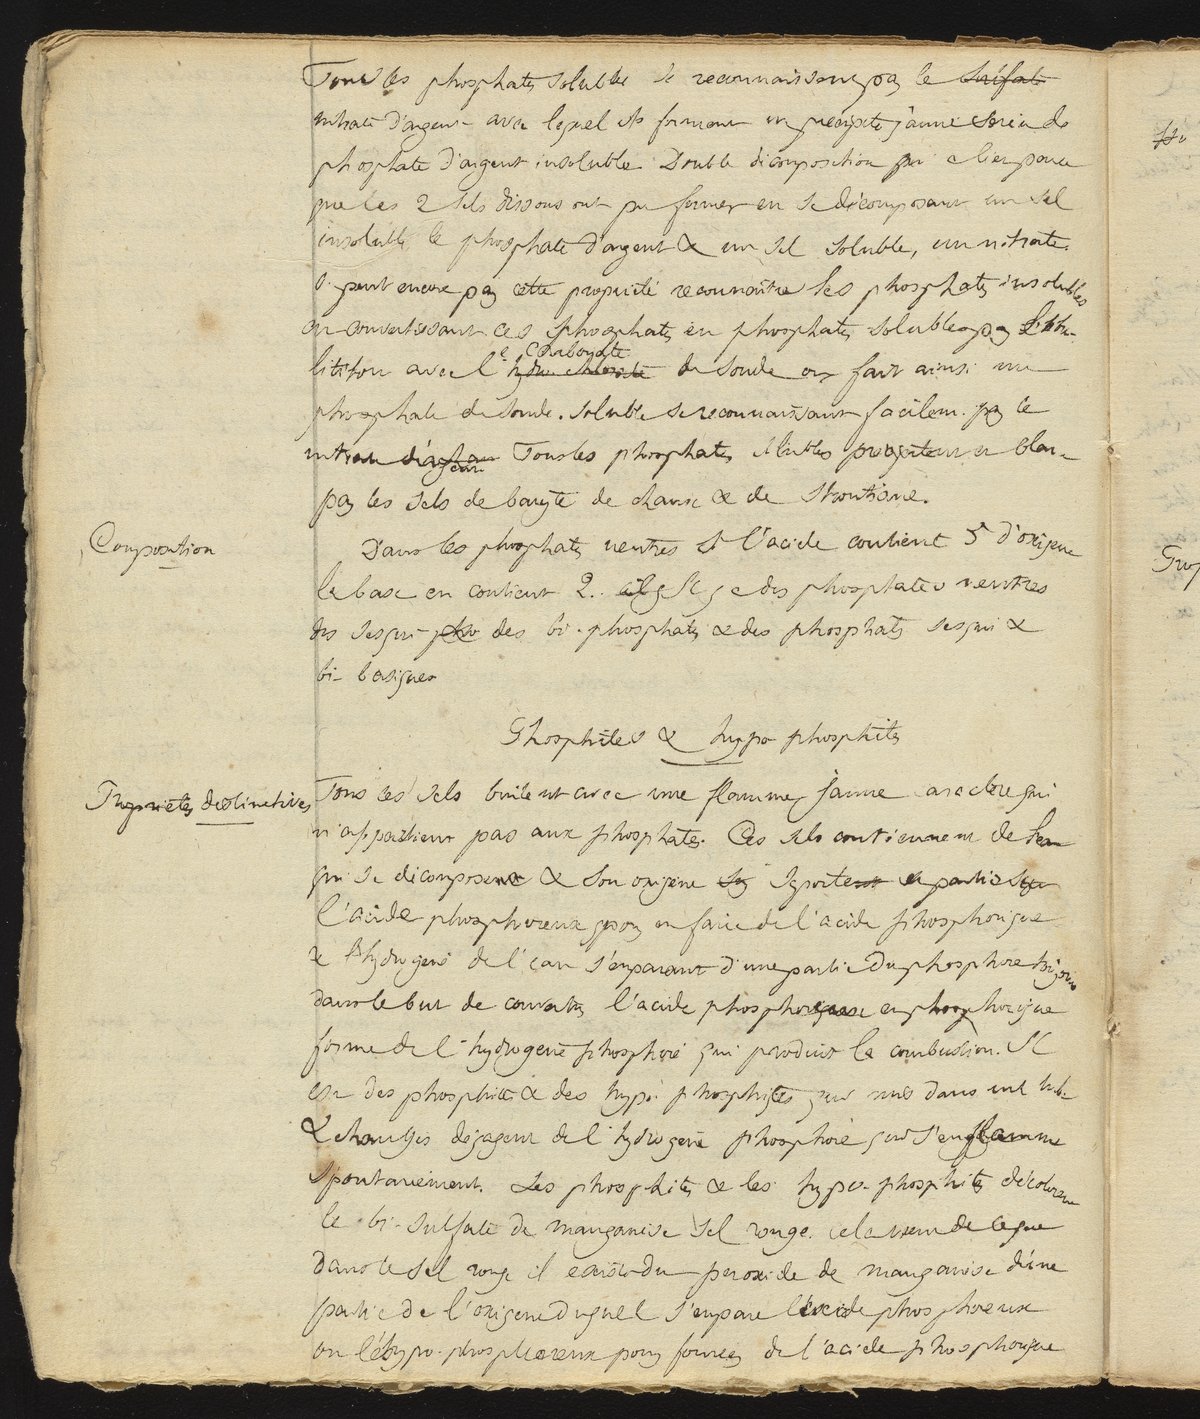 Tous les phosphates solubles se reconnaissent par le sulfate
nitrate d'argent avec lequel ils forment un précipité jaune serin de
phosphate d'argent insoluble. Double décomposition qui a lieu parce
que les 2 sels dissous ont pu former en se décomposant un sel
insoluble le phosphate d'argent & un sel soluble, un nitrate.
peut encore par cette propriété reconnaître les phosphates insolubles
en convertissant ces phosphates en phosphates solubles par
avec le carbonate de soude on fait ainsi un
phosphate de soude soluble se reconnaissant facilem. par le
nitrate d'argent Tous les phosphates solubles précipitent en blanc
par les sels de baryte de chaux & de strontiane.
Composition
Dans les phosphates neutres si l'acide contient 5 d'oxigene
la base en contient 2. il y a des phosphates neutres
des sesqui pho des bi-phosphates & des phosphates sesqui &
bi-basiques
Phosphites & hypo phosphites
Propriétés distinctives
Tous ces sels brulent avec une flamme jaune caractère qui
n'appartient pas aux phosphates. Ces sels contiennent de l'eau
qui se décompose & son oxigene se porte en partie sur
l'acide phosphoreux pour en faire de l'acide phosphorique
& l'hydrogène de l'eau s'emparant d'une partie du phosphore toujours
dans le but de convertir l'acide phosphoreux en phosphorique
forme de l'hydrogène phosphoré qui produit la combustion. Il
est des phosphites & des hypo phosphites qui mis dans un tube
& chauffés dégagent de l'hydrogène phosphoré qui s'enflamme
spontanément. Les phosphites & les hypo-phosphites décolorent
le bi-sulfate de manganèse sel rouge. cela vient de ce que
dans le sel rouge il existe du peroxide de manganèse d'une
partie de l'oxigene duquel s'empare l'acide phosphoreux
ou l'hypo-phosphoreux pour former de l'acide phosphorique